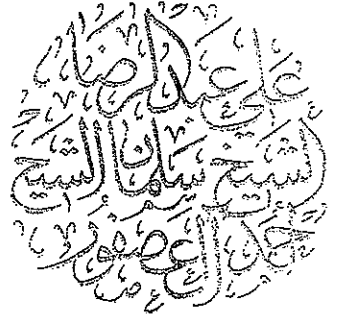 علي عبدالرضا
الشيخ سلمان الشيخ
أحمد آل عصفور